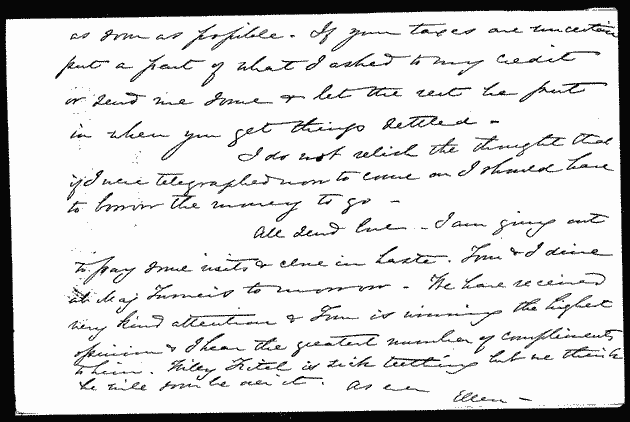 as soon as possible. If your taxes are uncertain
put a part of what I asked to my credit
or send me some & let the rest be put
in when you get things settled -
I do not relish the thought that
if I were telegraphed now to come on I should have
to borrow the money to go -
All send love - I am going out
to pay some visits & close in haste. Tom & I dine
at Maj Turner's to morrow - We have received
very kind attention & Tom is winning the highest
opinion & I hear the greatest number of compliments
to him. is sick teething but we think
he will soon be over it. As ever
Ellen -